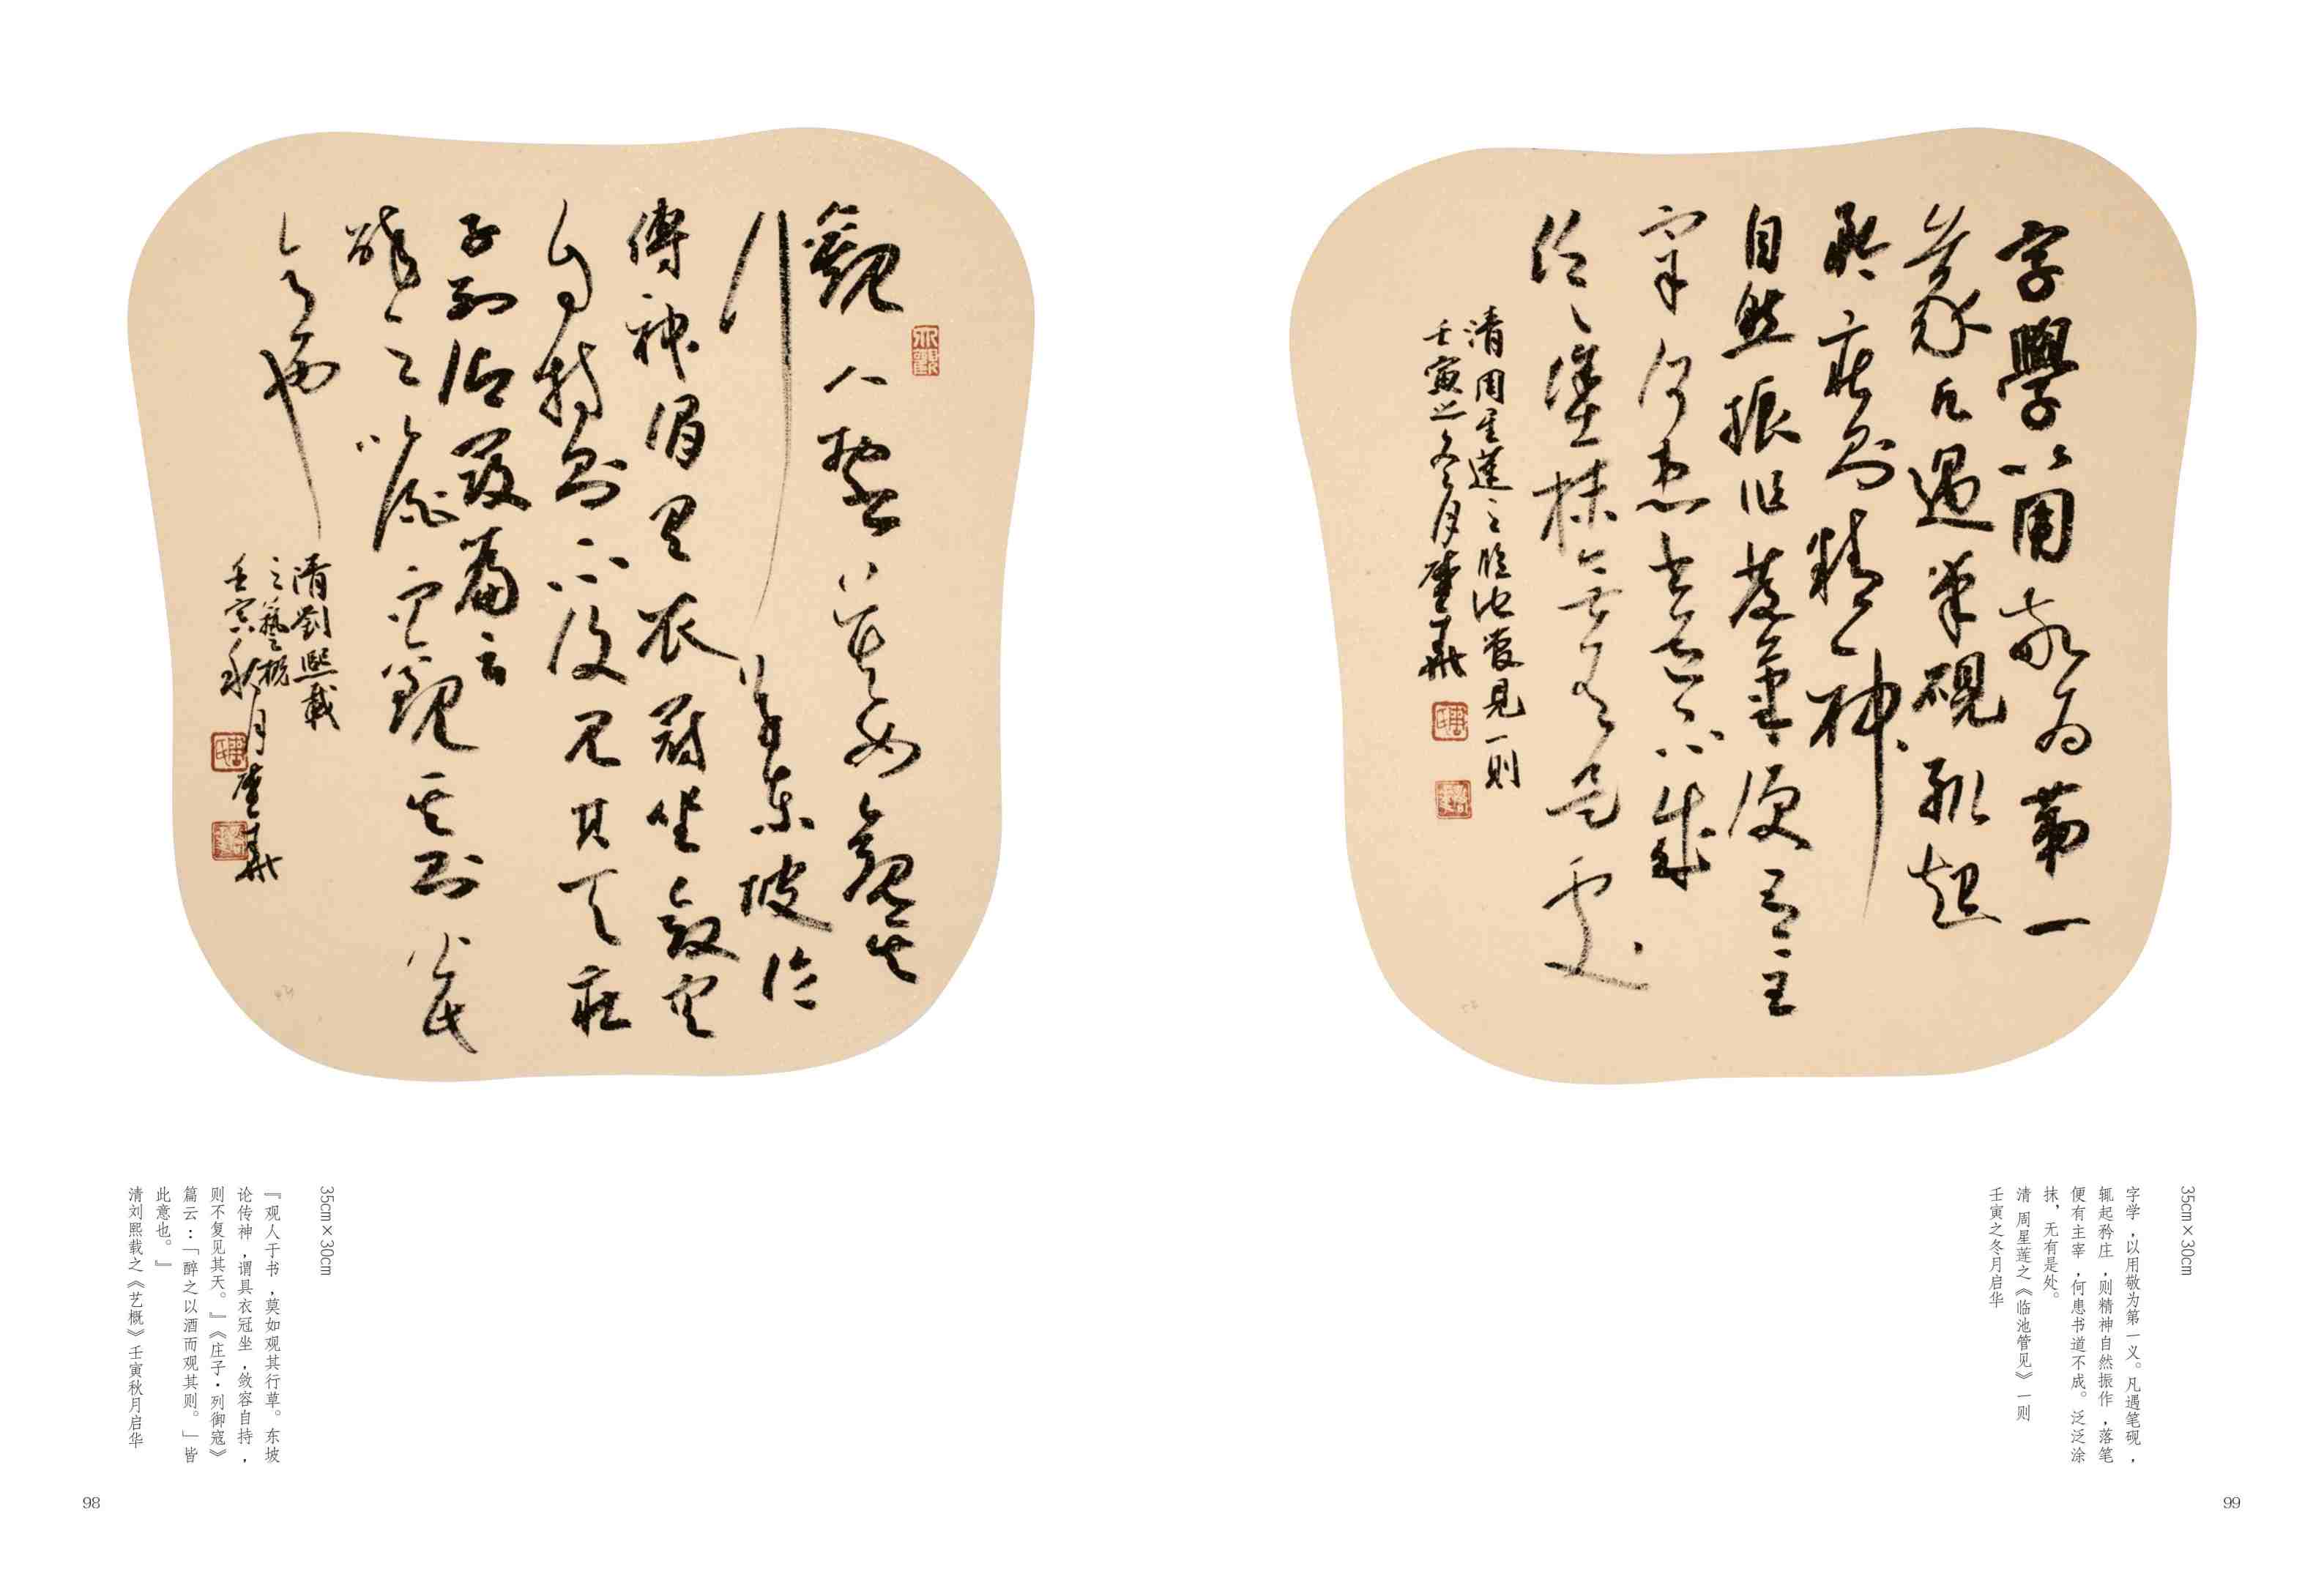 觀人於書莫如觀其
行草東坡論
傳神謂具衣冠坐斂容
自持則不復見其天莊
子列御寇篇云
醉之以酒而觀其則皆
此意也
清劉熙載
之藝概
壬寅秋月啟華
35cm×30cm
『观人于书，莫如观其行草。东坡
论传神，谓具衣冠坐，敛容自持，
则不复见其天。』《庄子·列御寇》
篇云：「醉之以酒而观其则。」皆
此意也。』
清刘熙载之《艺概》壬寅秋月启华
98
字學以用敬為第一
義凡遇筆硯輒起
矜莊則精神
自然振作落筆便有主
宰何患書道不成
泛泛塗抹無有是處
清周星蓮之臨池管見一則
壬寅之冬月啟華
35cm×30cm
字学，以用敬为第一义。凡遇笔砚，
辄起矜庄，则精神自然振作，落笔
便有主宰，何患书道不成。泛泛涂
抹，无有是处。
清 周星莲之《临池管见》一则
壬寅之冬月启华
99